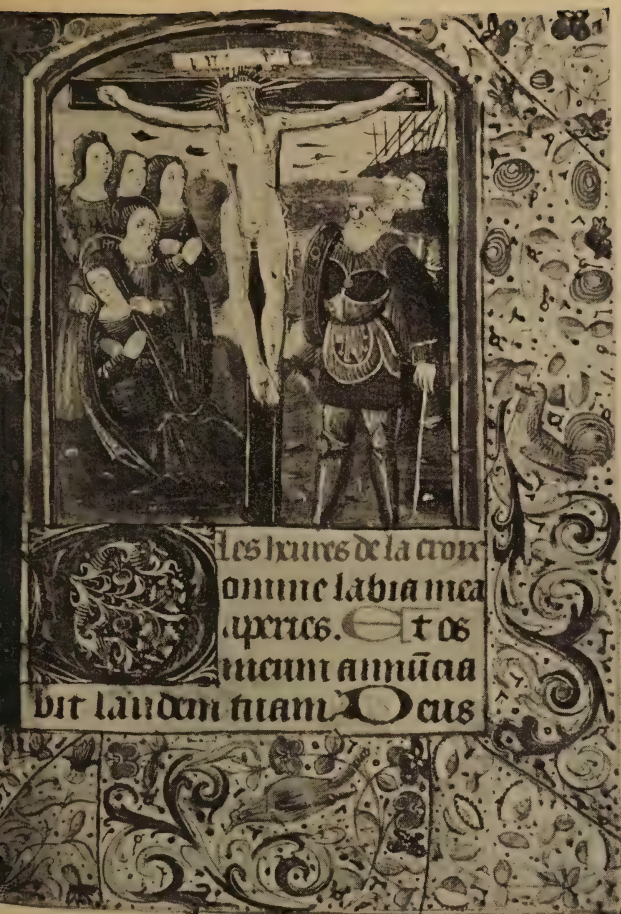 Les heures de la croix
Domine labia mea
aperies. Et os
meum annūcia
bit laudem tuam Deus